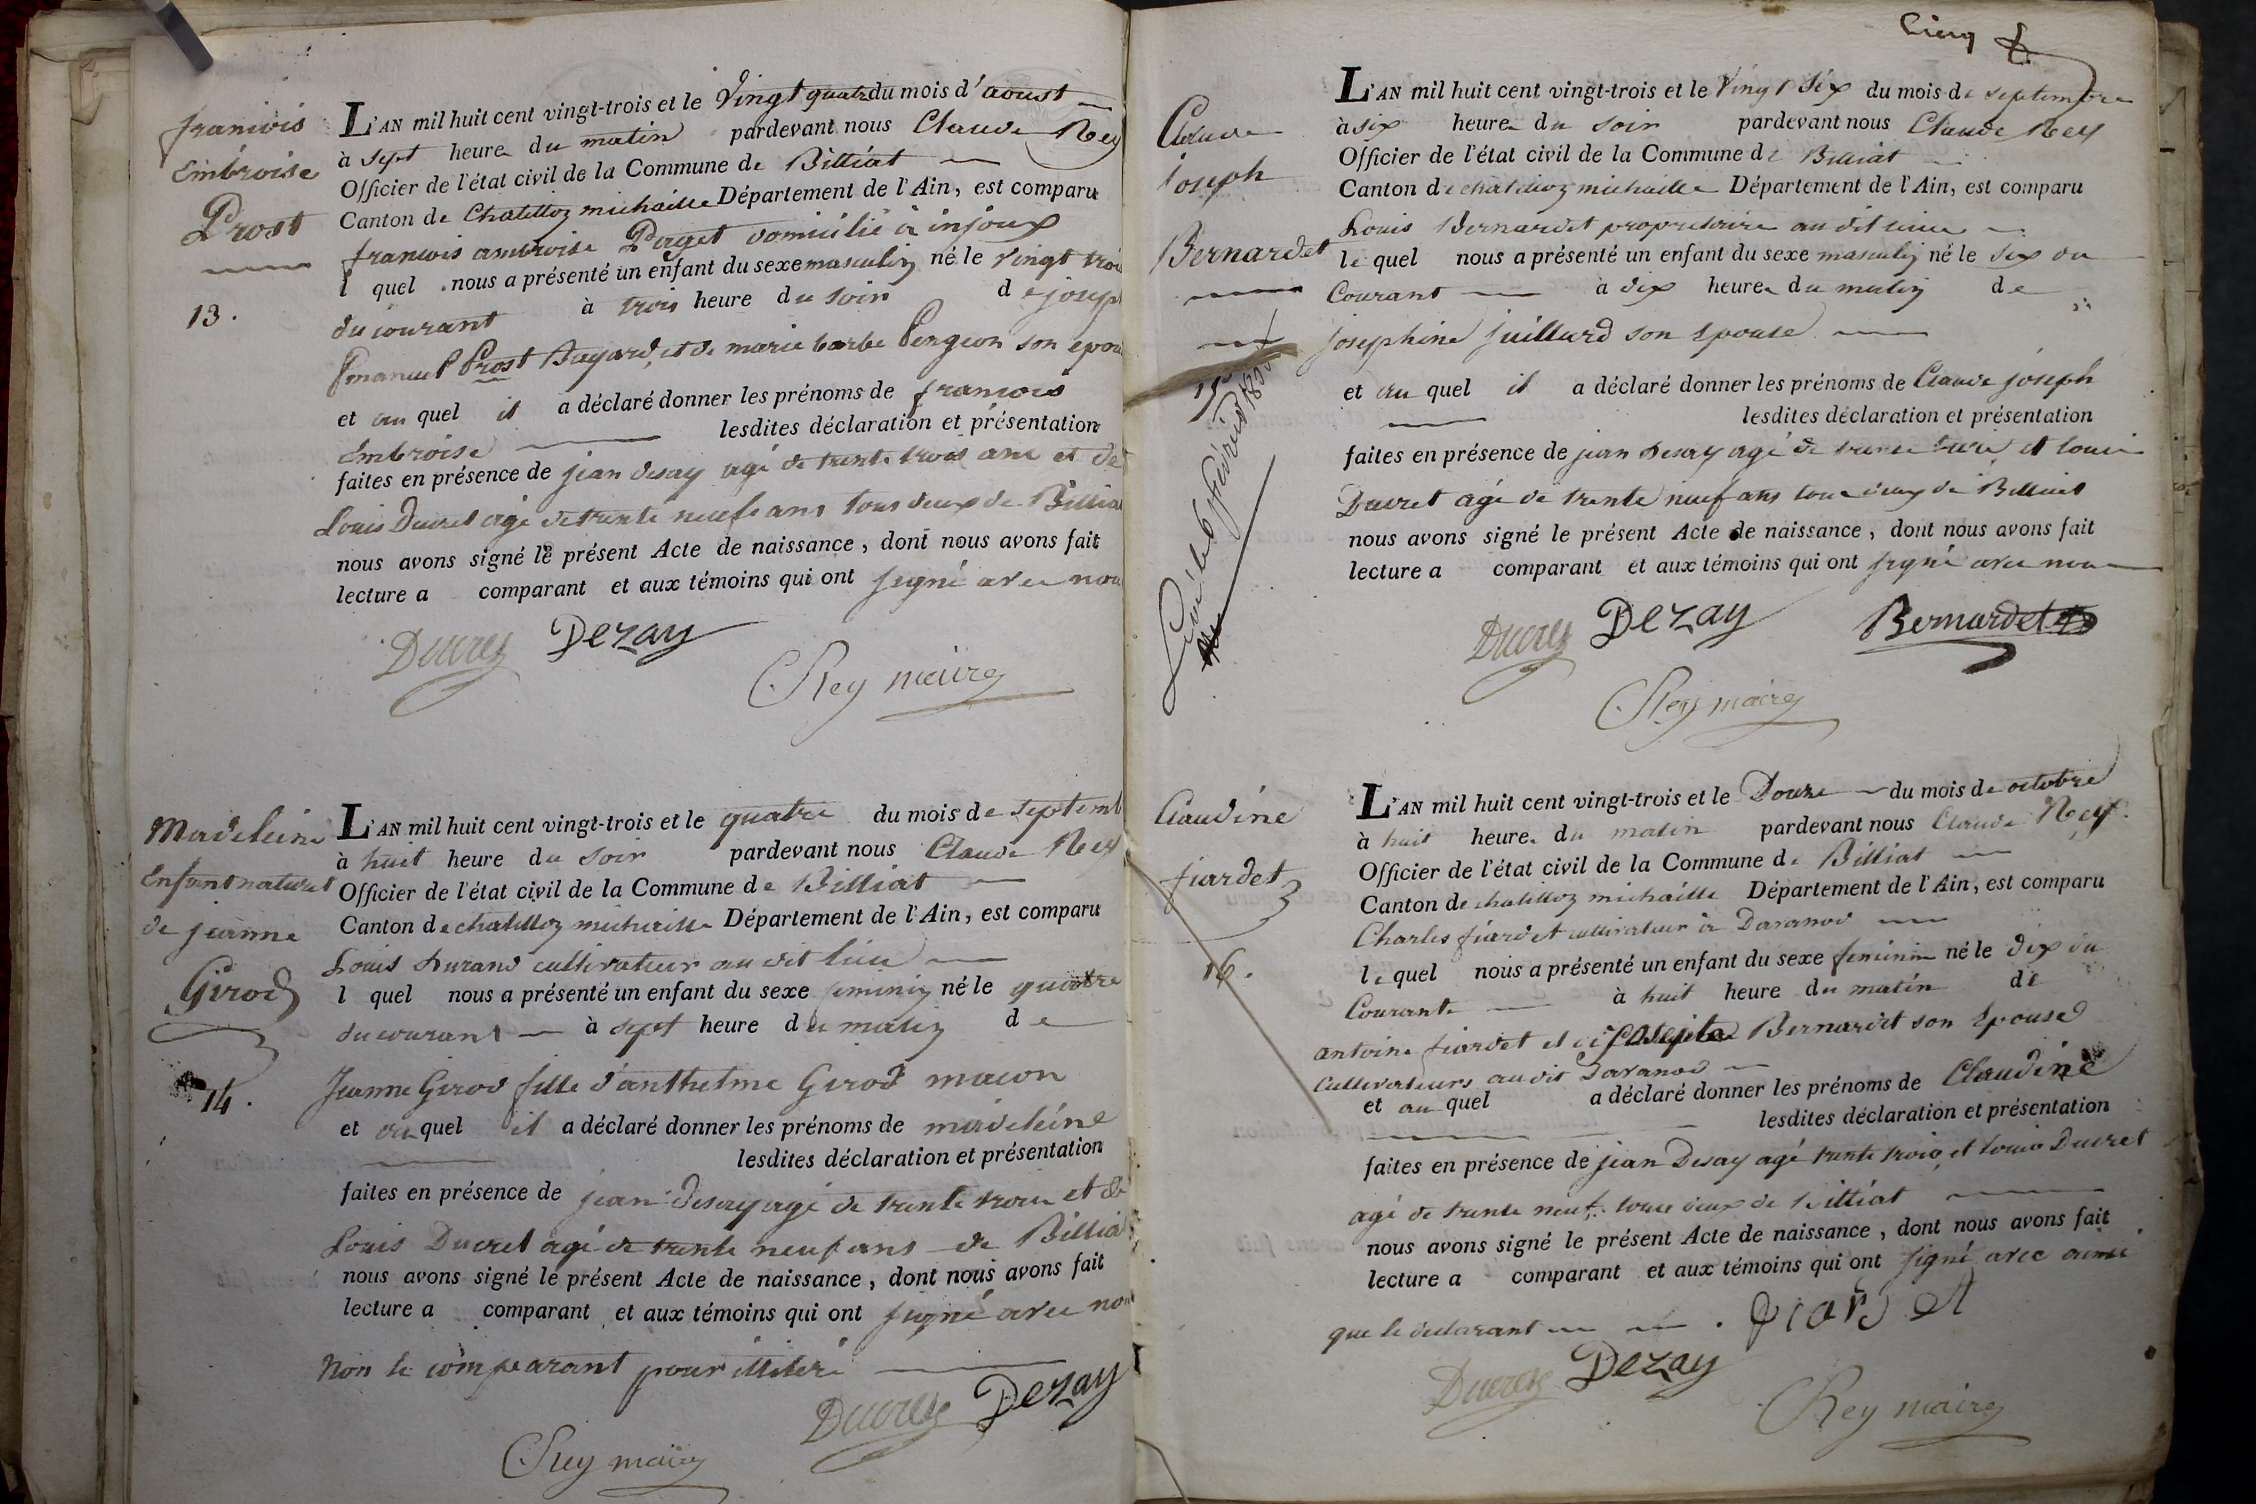 francois
Embroise
Prost
13.
L'AN mil huit cent vingt-trois et le Vingt quatre du mois d'aoust
à sept heure du matin pardevant nous Claude Rey
Officier de l'état civil de la Commune de Billiat
Canton de Chatillon michaille Département de l'Ain, est comparu
francois ambroise Paget domicilié à injoux
l quel nous a présenté un enfant du sexe masculin né le vingt trois
du courant à trois heure du soir de joseph
Emanuel Prost Bayard, et de marie barbe Pengeon son epou
et au quel il a déclaré donner les prénoms de francois
Embroise lesdites déclaration et présentation
faites en présence de jean desay agé de trente trois ans et de
Louis Ducret agé de trente neuf ans tous deux de Billiat
nous avons signé le présent Acte de naissance, dont nous avons fait
lecture a comparant et aux témoins qui ont signé avec nou
Ducrey Dezay
CRey maire
Madeleine
Enfant naturel
de jeanne
Girod
14.
L'AN mil huit cent vingt-trois et le quatre du mois de septemb
à huit heure du soir pardevant nous Claude Rey
Officier de l'état civil de la Commune de Billiat
Canton de chatillon michaille Département de l'Ain, est comparu
Louis Durand cultivateur au dit lieu
l quel nous a présenté un enfant du sexe feminin né le quatre
du courant à sept heure du matin de
Jeanne Girod fille d'anthelme Girod macon
et au quel il a déclaré donner les prénoms de madeleine
lesdites déclaration et présentation
faites en présence de jean desay agé de trente trois et de
Louis Ducret agé de trente neuf ans de Billia
nous avons signé le présent Acte de naissance, dont nous avons fait
lecture a comparant et aux témoins qui ont signé avec nou
Non le comparant pour illiteré
Ducrey Dezay
CRey maire
Cinq
Claude
joseph
Bernardet
15
L'AN mil huit cent vingt-trois et le Vingt Six du mois de septembre
à six heure du soir pardevant nous Claude Rey
Officier de l'état civil de la Commune de Billiat
Canton de chatillon michaille Département de l'Ain, est comparu
Louis Bernardet propriétaire au dit lieu
le quel nous a présenté un enfant du sexe masculin né le six du
Courant à dix heure du matin de
josephine juillard son epouse
et au quel il a déclaré donner les prénoms de Claude joseph
lesdites déclaration et présentation
faites en présence de jean desay agé de trente et louis
Ducret agé de trente neuf ans tous deux de Billiat
nous avons signé le présent Acte de naissance, dont nous avons fait
lecture a comparant et aux témoins qui ont signé avec nou
Ducrey Dezay Bernardet
CRey maire
Claudine
fiardet
16.
L'AN mil huit cent vingt-trois et le Douze du mois de octobre
à huit heure du matin pardevant nous Claude Rey
Officier de l'état civil de la Commune de Billiat
Canton de chatillon michaille Département de l'Ain, est comparu
Charles fiardet cultivateur à Davanod
le quel nous a présenté un enfant du sexe feminin né le dix du
Courant à huit heure du matin de
antoine fiardet et Bernardet son Epouse
Cultivateurs au dit Davanod
et au quel a déclaré donner les prénoms de Claudine
lesdites déclaration et présentation
faites en présence de jean Desay agé trente trois et louis Ducret
agé de trente neuf tous deux de billiat
nous avons signé le présent Acte de naissance, dont nous avons fait
lecture a comparant et aux témoins qui ont signé avec
que le declarant fiardet
Ducrey Dezay
CRey maire